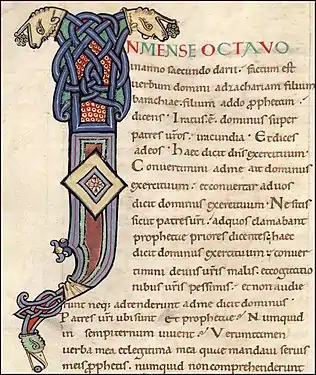 IN MENSE OCTAVO
inanno saecundo darii. factum est
uerbum domini adzachariam filium
barachiae. filium addo prophetam
dicens. Iratus ē. dominus super
patres uros. iracundia. Et dices
adeos. Haec dicit dns exercituum.
Conuertimini adme ait dominus
exercituum. et conuertar ad uos
dicit dominus exercituum. Ne sitis
sicut patres uri. adquos clamabant
prophetae priores dicentes; haec
dicit dominus exercituum;
timini deuiis uris malis. etcogitatio
nibus uris pessimis. et non audie
runt neq; adtenderunt adme dicit dominus.
Patres uri ubi sunt et prophetae. Numquid
in sempiternum uiuent. Veruntamen
uerba mea et legitima mea quae mandaui seruis
meis prophetis. numquid non comprehenderunt